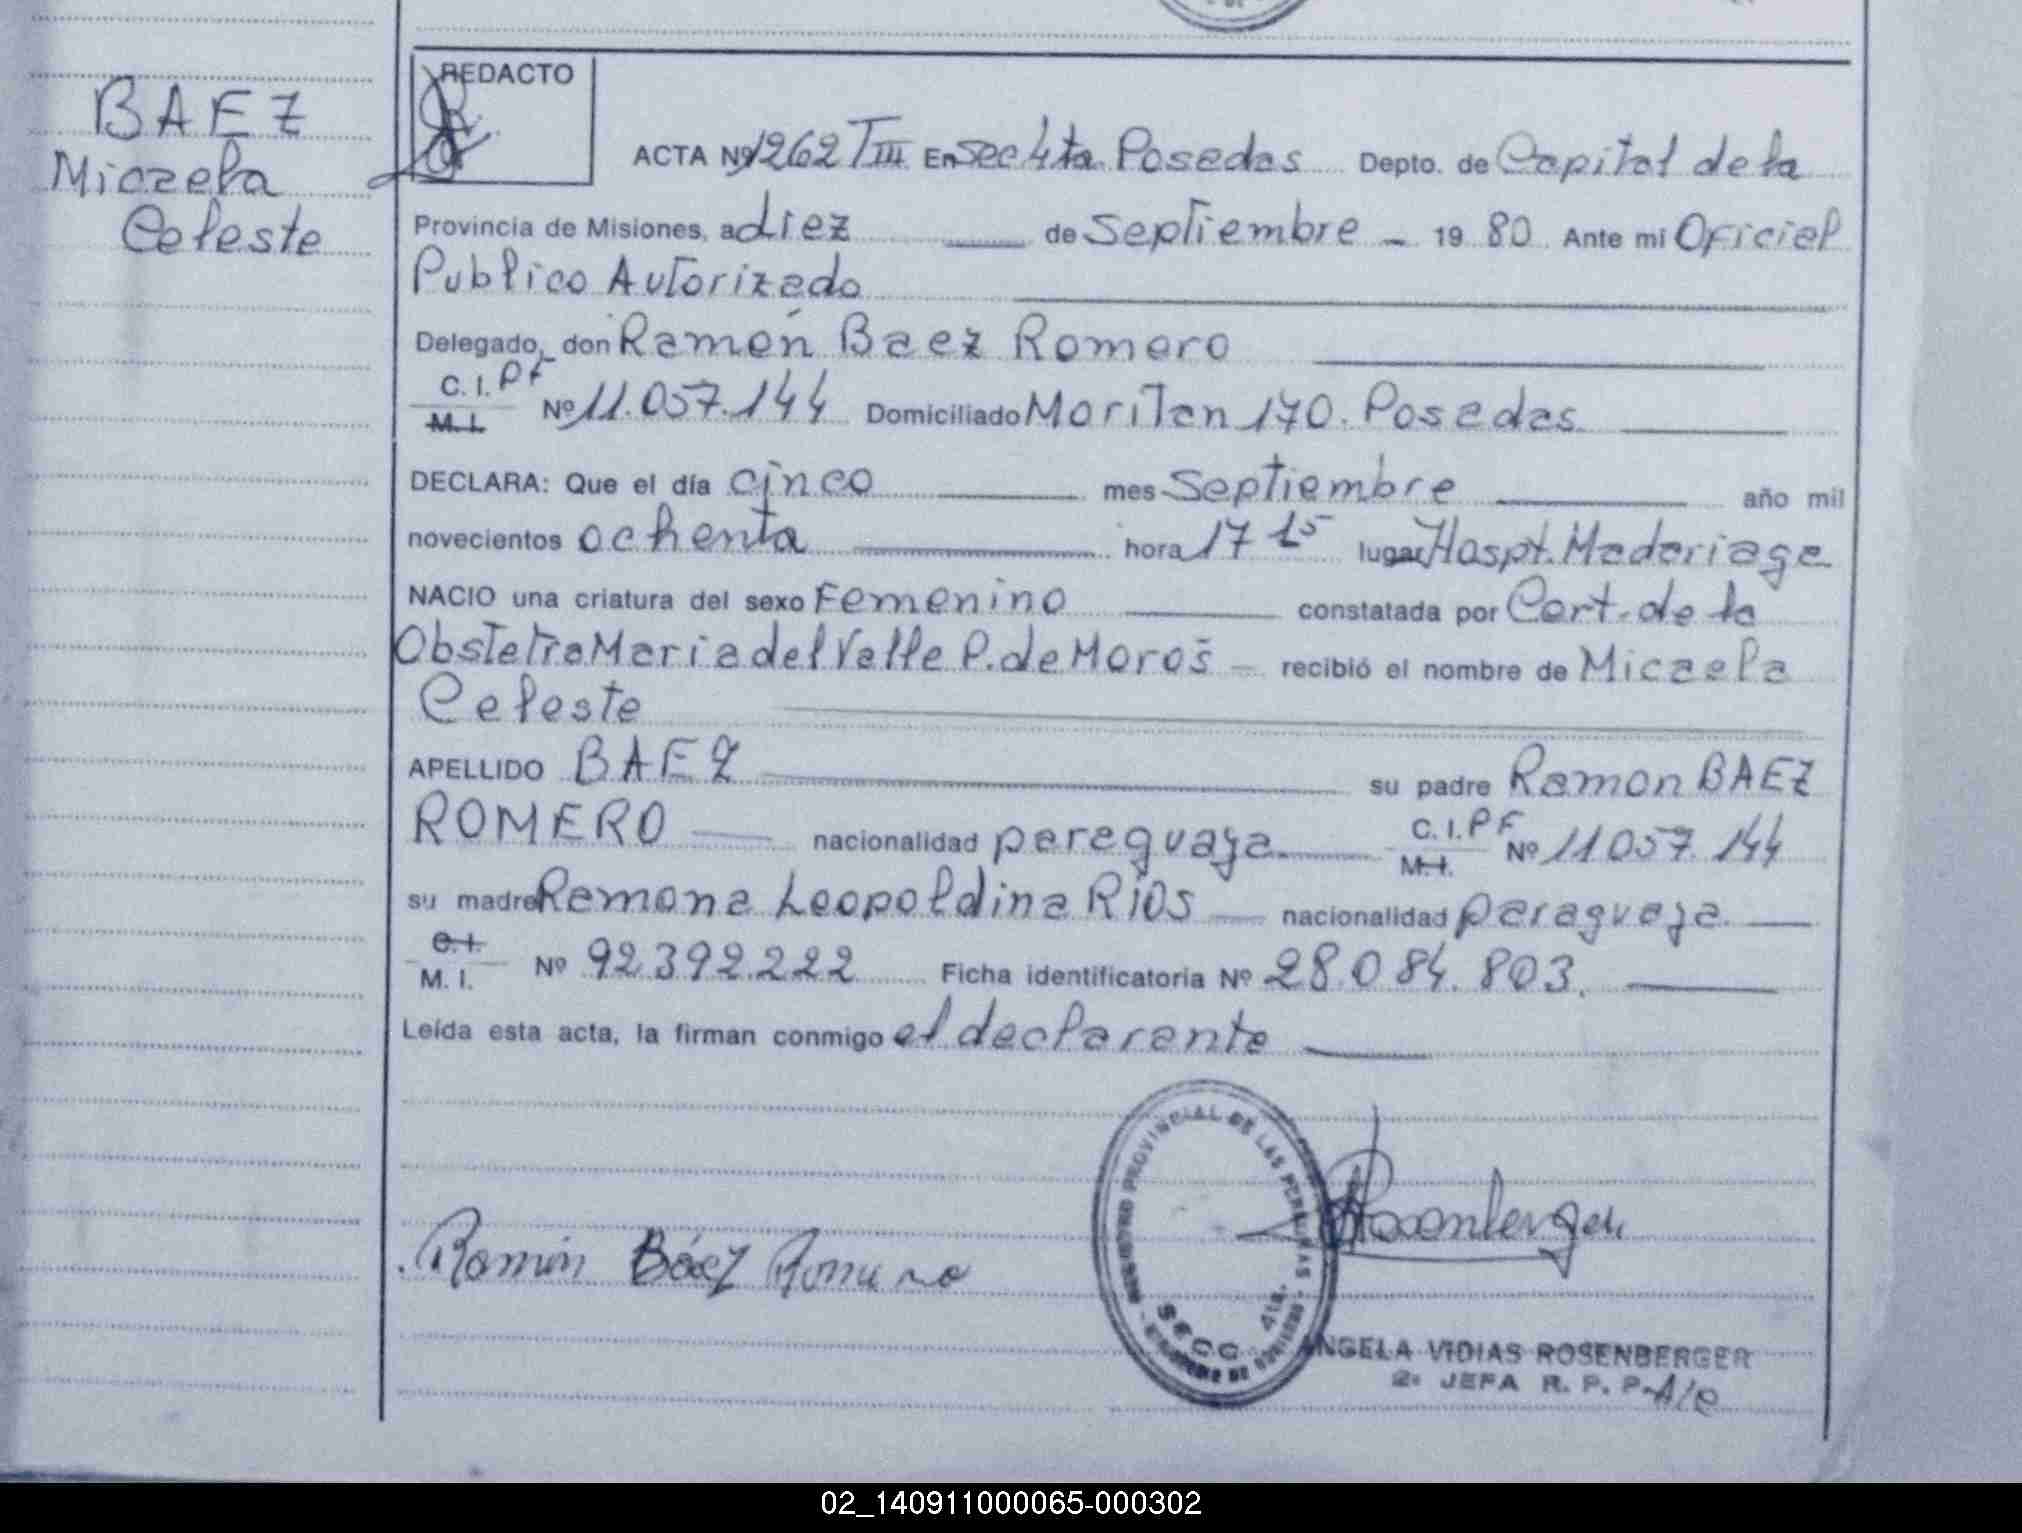 BAEZ
Micaela
Celeste
REDACTO
ACTA Nº 1262 T III En Sec 4ta. Posadas Depto. de Capital de la
Provincia de Misiones, a diez de Septiembre 19 80 Ante mi Oficial
Publico Autorizado
Delegado, don Ramón Baez Romero
C. I. PF
M. I. Nº 11.057.144 Domiciliado Moritan 170. Posadas
DECLARA: Que el día cinco mes Septiembre año mil
novecientos ochenta hora 17 15 lugar Hospt. Madariaga
NACIO una criatura del sexo Femenino constatada por Cert. de la
Obstetra Maria del Valle P. de Moros recibió el nombre de Micaela
Celeste
APELLIDO BAEZ su padre Ramon BAEZ
ROMERO nacionalidad paraguaya C. I. PF
M. I. Nº 11057.144
su madre Ramona Leopoldina Ríos nacionalidad paraguaya
C. I.
M. I. Nº 92.392.222 Ficha identificatoria Nº 28.084.803.
Leída esta acta, la firman conmigo el declarante
REGISTRO PROVINCIAL DE LAS PERSONAS
SECC. 4ta.
Ramón Báez Romero
Rosenberger
ANGELA VIDIAS ROSENBERGER
2º JEFA R. P. P. A/C
02_140911000065-000302